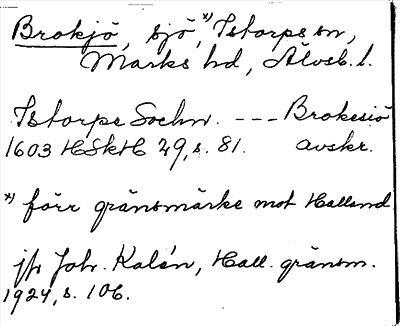 Brokjö, sjö, *) Istorps sn,
Marks hd, Älvsb. l.
Istorpe Sochn. --- Brokesiö
1603 HSkH 29, s. 81. avskr.
*) förr gränsmärke mot Halland
jfr Joh. Kalén, Hall. gränsm.
1924, s. 106.